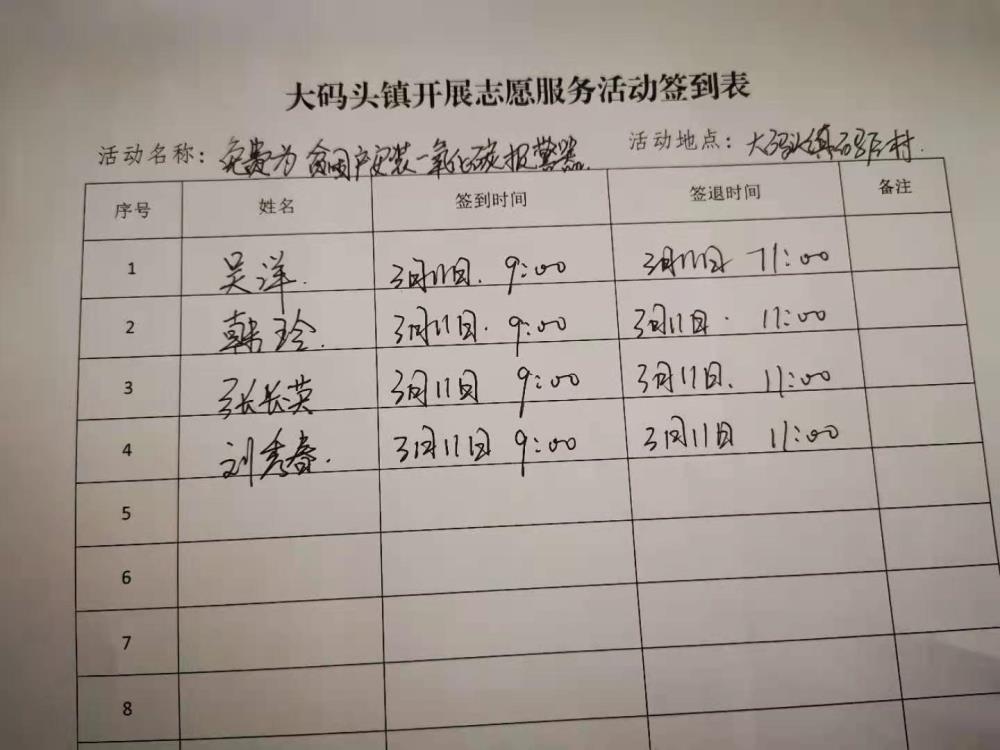 大码头镇开展志愿服务活动签到表
活动名称：免费为贫困户安装一氧化碳报警器 活动地点：大码头镇 村
序号 姓名 签到时间 签退时间 备注
1 吴洋. 3月11日. 9:00 3月11日 11:00
2 韩玲. 3月11日. 9:00 3月11日. 11:00
3 张长英 3月11日 9:00 3月11日. 11:00
4 刘秀春. 3月11日 9:00 3月11日 11:00
5
6
7
8